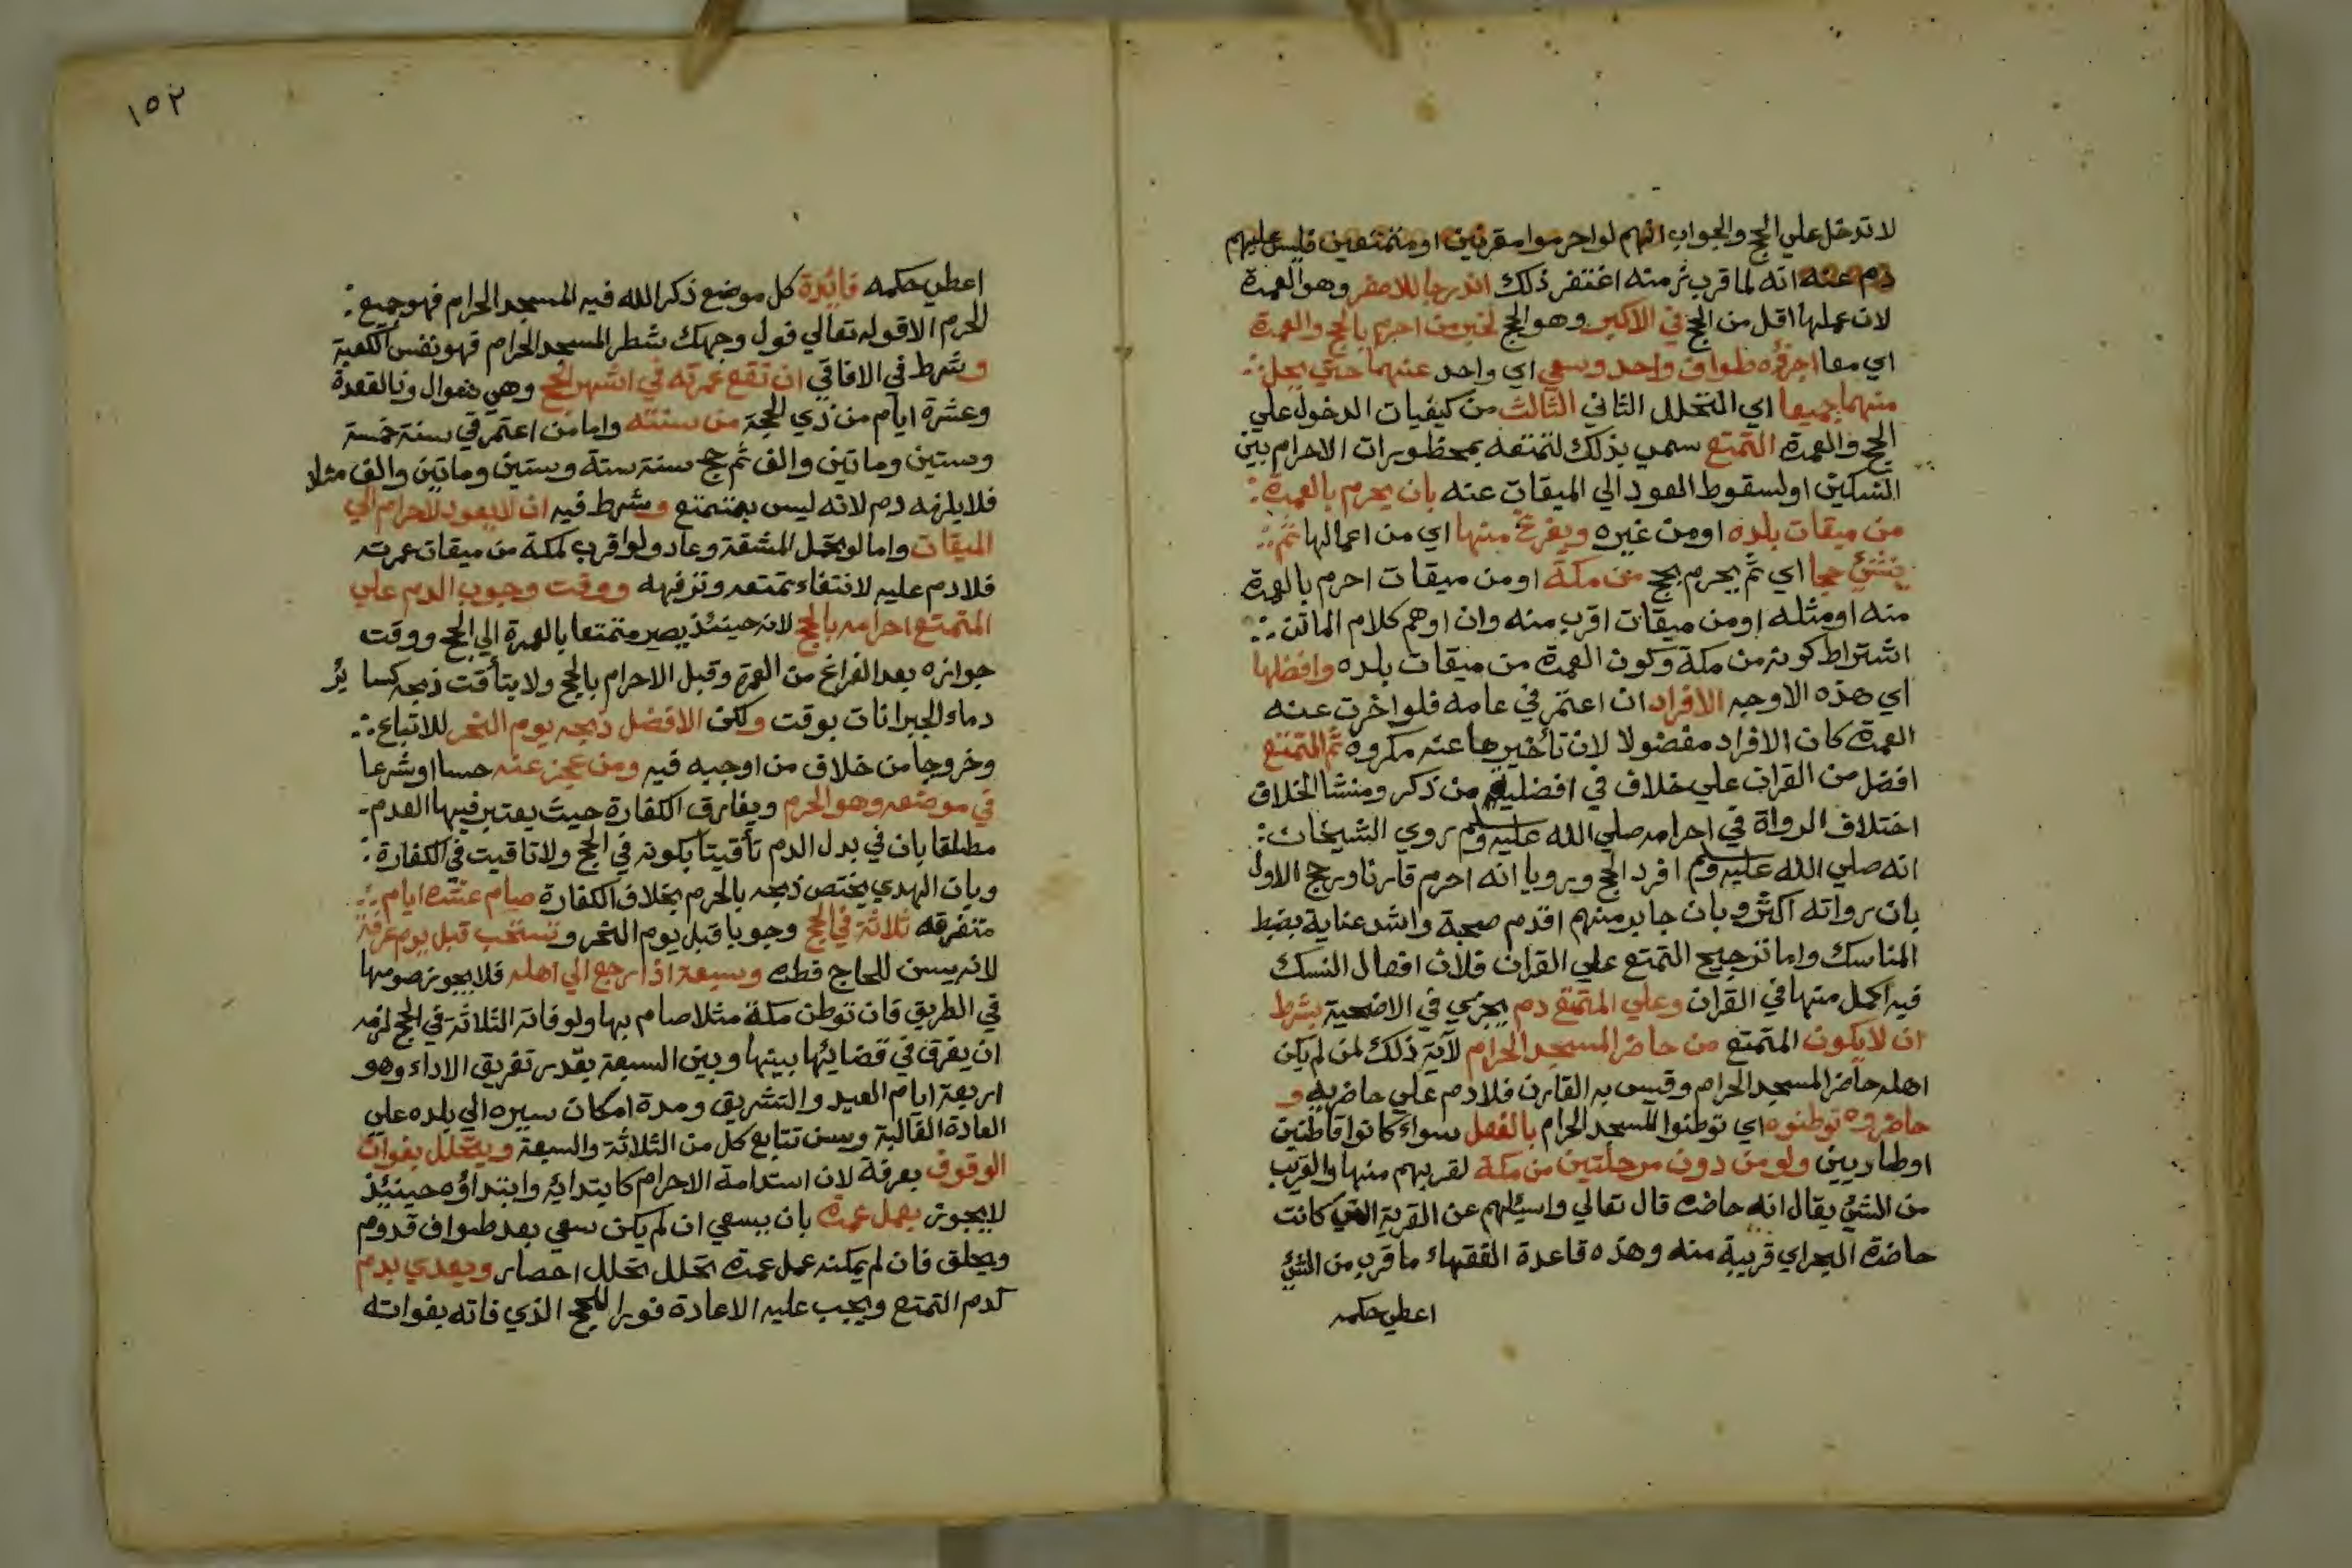 لا تدخل علي الحج والجواب انهم لو احرموا مقرنين او متمتعين فليس عليهم
دم عنه انه لما قرب زمنه اغتفر ذلك اندرجا للاصغر وهو العمرة
لان عملها اقل من الحج في الاكبر وهو الحج لخبر من احرم بالحج والعمرة
اي معا اجزؤه طواف واحد وسعي اي واحد عنهما حتي يحل
منهما جميعا اي التحلل الثاني الثالث من كيفيات الدخول علي
الحج والعمرة التمتع سمي بذلك لتمتعه بمحظورات الاحرام بين
النسكين او لسقوط العود الي الميقات عنه بان يحرم بالعمرة
من ميقات بلده او من غيره ويفرغ منها اي من اعمالها ثم
ينشئ حجا اي ثم يحرم بحج من مكة او من ميقات احرم بالعمرة
منه او مثله او من ميقات اقرب منه وان اوهم كلام الماتن
اشتراط كونه من مكة وكون العمرة من ميقات بلده وافضلها
اي هذه الاوجه الافراد ان اعتمر في عامه فلو اخرت عنه
العمرة كان الافراد مفضولا لان تأخيرها عنه مكروه ثم التمتع
افضل من القران علي خلاف في افضلية من ذكر ومنشا الخلاف
اختلاف الرواة في احرامه صلي الله عليه وسلم روي الشيخان
انه صلي الله عليه وسلم افرد الحج ورويا انه احرم قارنا ورجح الاول
بان رواته اكثر وبان جابر منهم اقدم صحبة واشد عناية بضبط
المناسك واما ترجيح التمتع علي القران فلان افعال النسك
فيه اكمل منها في القران وعلي المتمتع دم يجزي في الاضحية بشرط
ان لا يكون المتمتع من حاضر المسجد الحرام لآية ذلك لمن لم يكن
اهله حاضر المسجد الحرام وقيس به القارن فلا دم علي حاضريه و
حاضروه توطنوه اي توطنوا المسجد الحرام بالفعل سواء كانوا قاطنين
او طاريين ولو من دون مرحلتين من مكة لقربهم منها والقريب
من الشئ يقال انه حاضره قال تعالي واسئلهم عن القرية التي كانت
حاضرة البحر اي قريبة منه وهذه قاعدة الفقهاء ما قرب من الشئ
اعطي حكمه
١٥٢
اعطي حكمه فائدة كل موضع ذكر الله فيه المسجد الحرام فهو جميع
الحرم الا قوله تعالي فول وجهك شطر المسجد الحرام فهو نفس الكعبة
وشرط في الافاقي ان تقع عمرته في اشهر الحج وهي شوال وذا القعدة
وعشرة ايام من ذي الحجة من سنته واما من اعتمر في سنة خمسة
وستين وماتين والف ثم حج سنة ستة وستين وماتين والف مثلا
فلا يلزمه دم لانه ليس بمتمتع وشرط فيه ان لا يعود للاحرام الي
الميقات واما لو تحمل المشقة وعاد ولو اقرب لمكة من ميقات عمرته
فلا دم عليه لانتفاء تمتعه وترفهه ووقت وجوب الدم علي
المتمتع احرامه بالحج لانه حينئذ يصير متمتعا بالعمرة الي الحج ووقت
جوازه بعد الفراغ من العمرة وقبل الاحرام بالحج ولا يتأقت ذبحه كسا ئر
دماء الجبرانات بوقت ولكن الافضل ذبحه يوم النحر للاتباع
وخروجا من خلاف من اوجبه فيه ومن عجز عنه حسا او شرعا
في موضعه وهو الحرم ويفارق الكفارة حيث يعتبر فيها العدم
مطلقا بان في بدل الدم تأقيتا بكونه في الحج ولا تاقيت في الكفارة
وبان الهدي يختص ذبحه بالحرم بخلاف الكفارة صيام عشرة ايام
متفرقه ثلاثة في الحج وجوبا قبل يوم النحر وتستحب قبل يوم عرفة
لانه يسن للحاج فطره وسبعة اذا رجع الي اهله فلا يجوز صومها
في الطريق فان توطن مكة مثلا صام بها ولو فاته الثلاثة في الحج لزمه
ان يفرق في قضائها بينها وبين السبعة بقدر تفريق الاداء وهو
اربعة ايام العيد والتشريق ومدة امكان سيره الي بلده علي
العادة الغالبة وسن تتابع كل من الثلاثة والسبعة ويتحلل بفوات
الوقوف بعرفة لان استدامة الاحرام كابتدائه وابتداؤه حينئذ
لا يجوز بعمل عمرة بان يسعي ان لم يكن سعي بعد طواف قدوم
ويحلق فان لم يمكنه عمل عمرة تحلل تحلل احصار ويهدي بدم
كدم التمتع ويجب عليه الاعادة فورا للحج الذي فاته بفواته